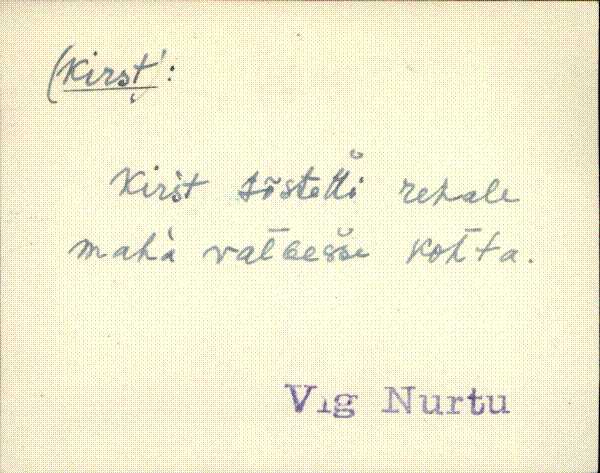 (kirst':
kir̀st tõstetti rehale
mahà valGešse kohta.
Vig Nurtu